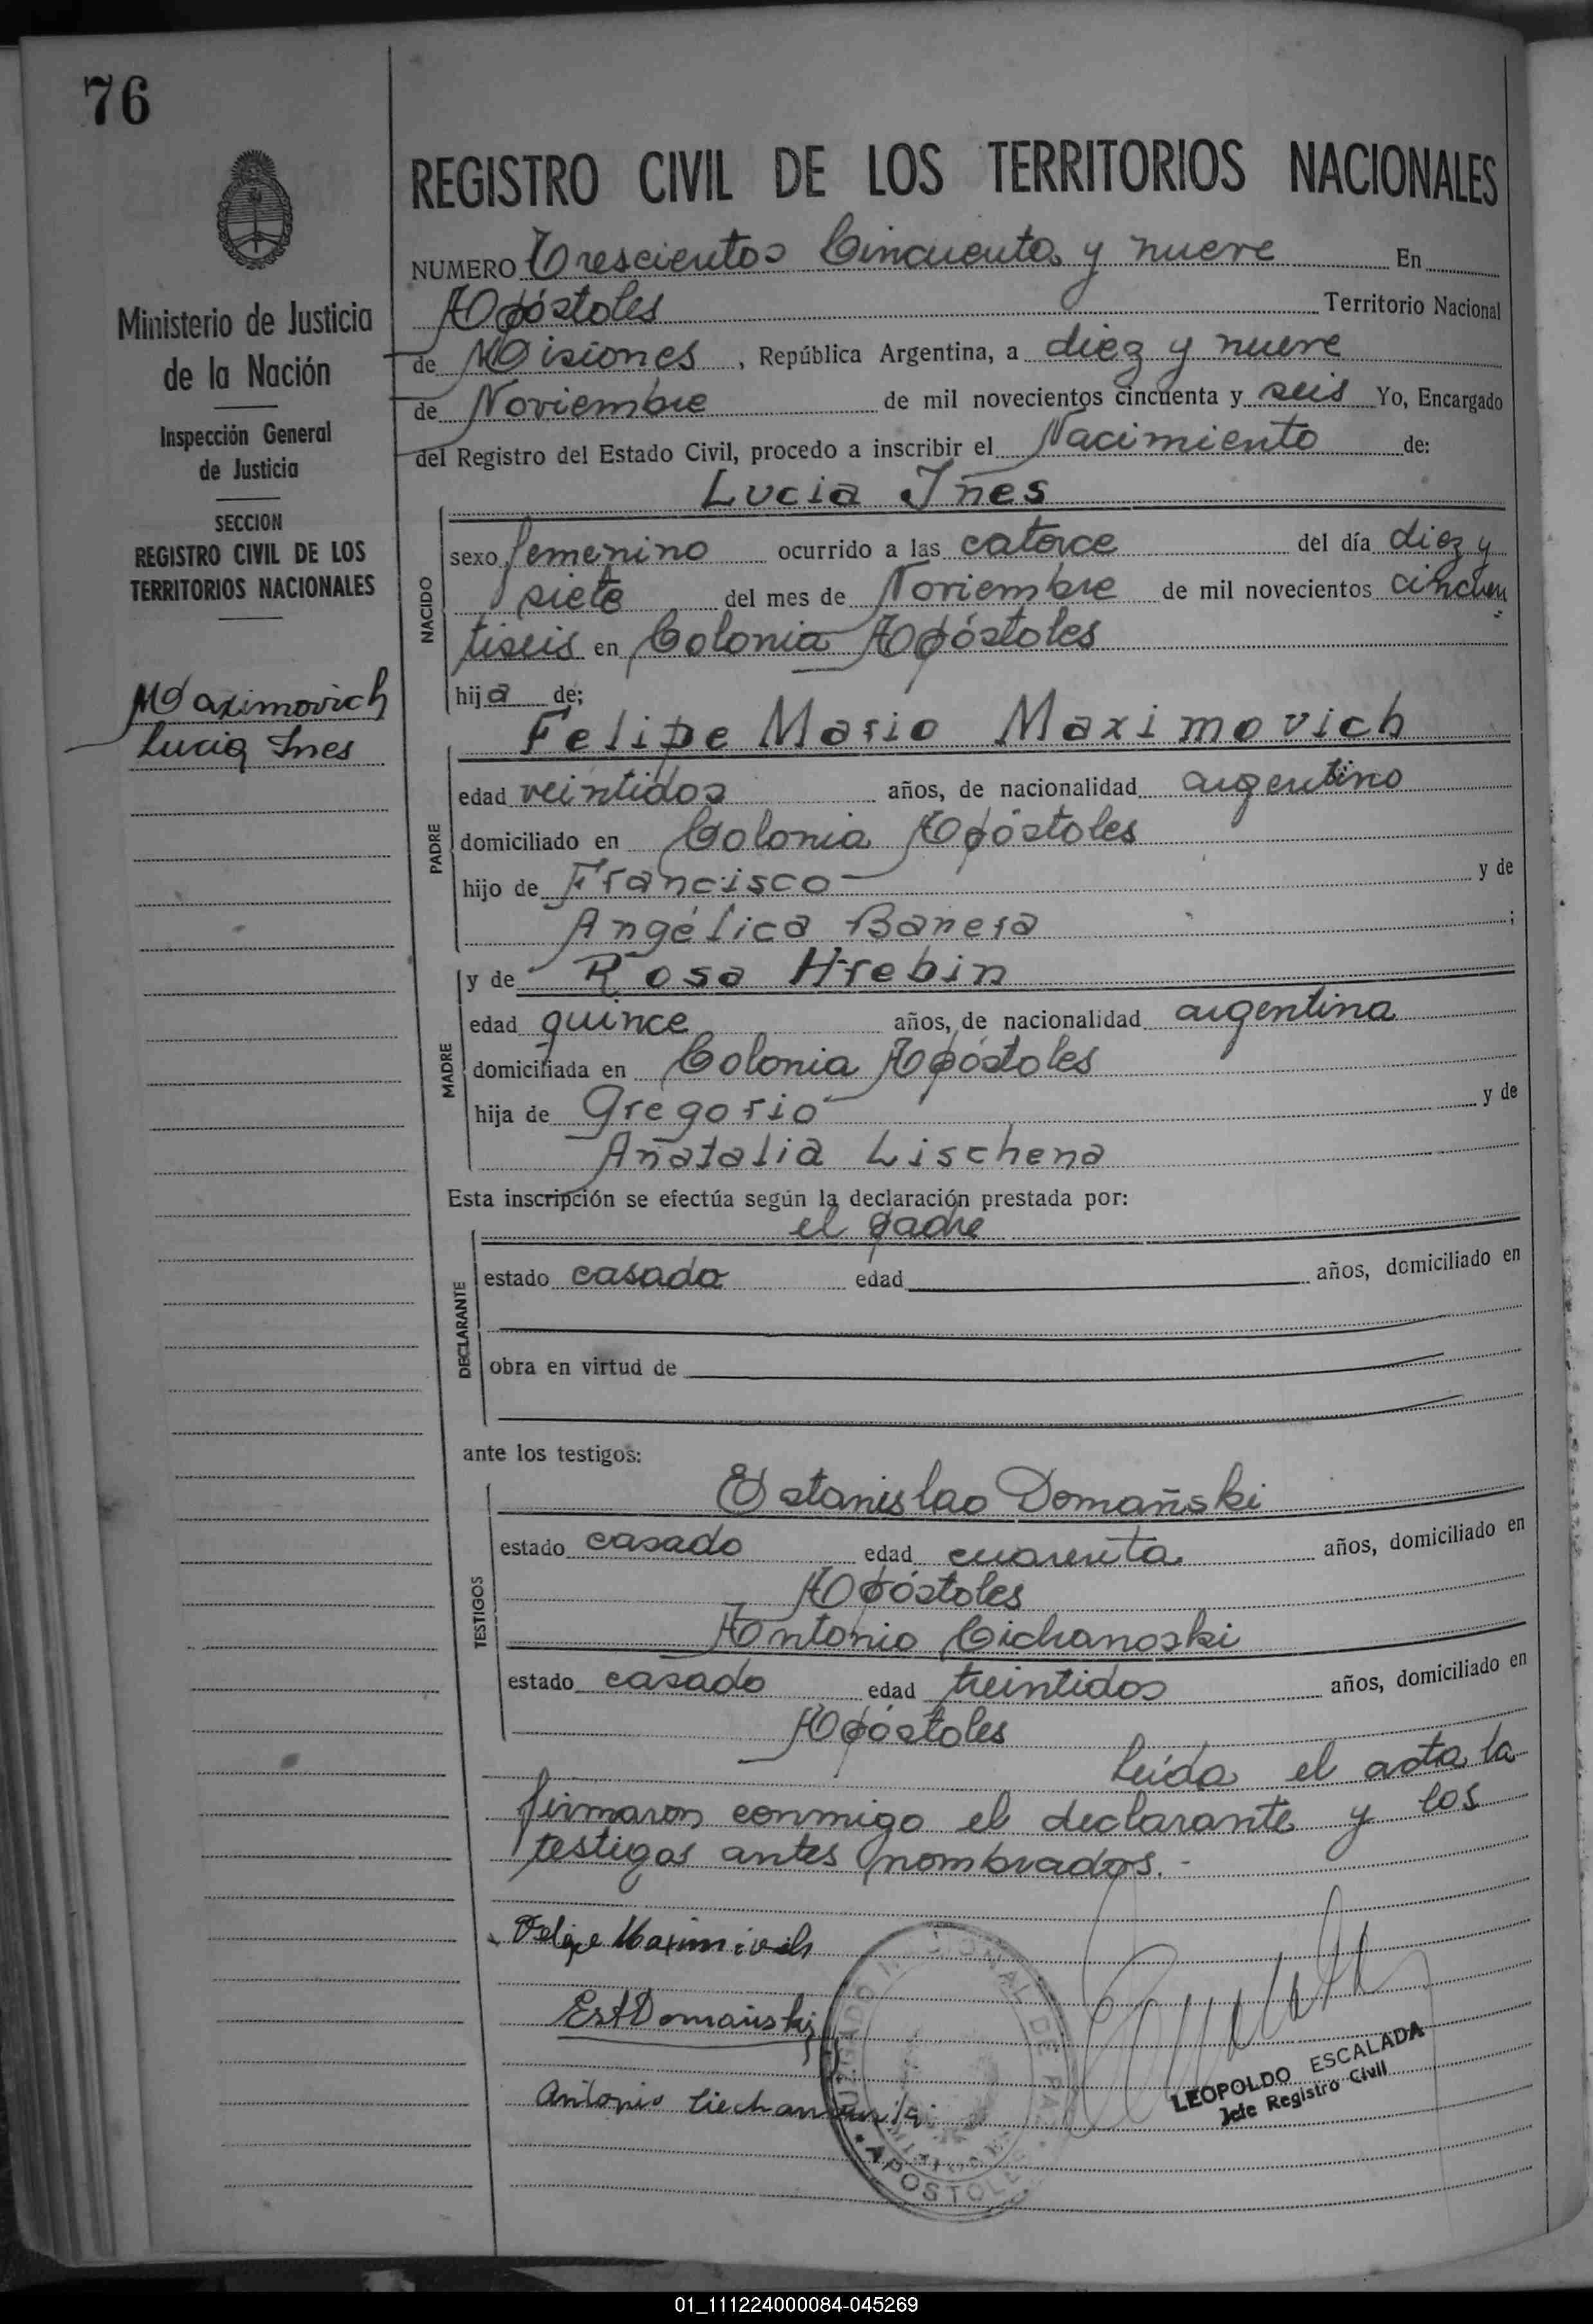 76
REGISTRO CIVIL DE LOS TERRITORIOS NACIONALES
NUMERO Trescientos Cincuenta y nueve En
Apóstoles Territorio Nacional
de Misiones, República Argentina, a diez y nueve
de Noviembre de mil novecientos cincuenta y seis Yo, Encargado
del Registro del Estado Civil, procedo a inscribir el Nacimiento de:
Lucia Ines
NACIDO
sexo femenino ocurrido a las catorce del día diez y
siete del mes de Noviembre de mil novecientos cincuen
tiseis en Colonia Apóstoles
hija de;
Felipe Mario Maximovich
PADRE
edad veintidos años, de nacionalidad argentino
domiciliado en Colonia Apóstoles
hijo de Francisco y de
Angélica Banera;
y de Rosa Hrebin
MADRE
edad quince años, de nacionalidad argentina
domiciliada en Colonia Apóstoles
hija de Gregorio y de
Anatalia Lischena
Esta inscripción se efectúa según la declaración prestada por:
el padre
DECLARANTE
estado casado edad años, domiciliado en
obra en virtud de
ante los testigos:
Estanislao Domañski
TESTIGOS
estado casado edad cuarenta años, domiciliado en
Apóstoles
Antonio Cichanoski
estado casado edad treintidos años, domiciliado en
Apóstoles
Leida el acta la
firmaron conmigo el declarante y los
testigos antes nombrados.-
Felipe Maximivich
Est Domañski
Antonio
LEOPOLDO ESCALADA
Jefe Registro Civil
APOSTOLES
Ministerio de Justicia
de la Nación
Inspección General
de Justicia
SECCION
REGISTRO CIVIL DE LOS
TERRITORIOS NACIONALES
Maximovich
Lucia Ines
01_111224000084-045269